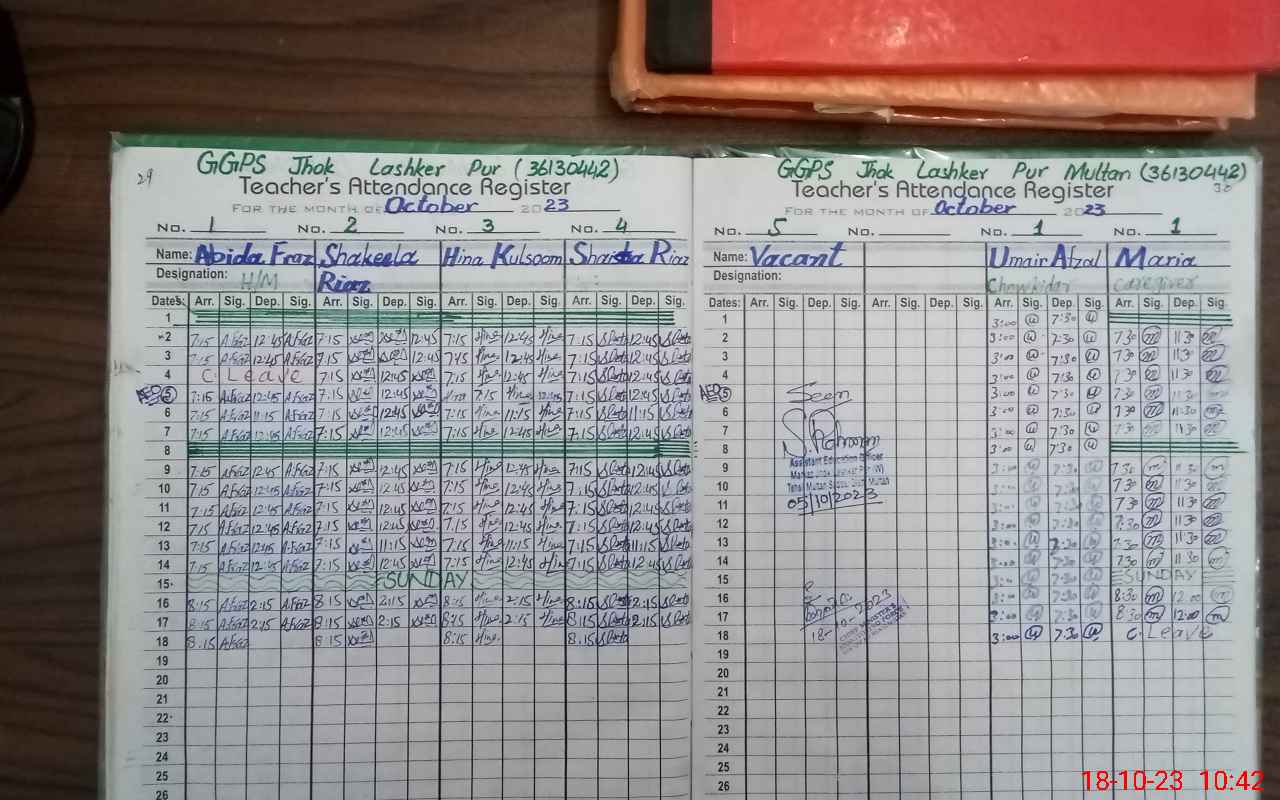 29
GGPS Jhok Lashker Pur (36130442)
Teacher's Attendance Register
FOR THE MONTH OF October 2023
No. 1 No. 2 No. 3 No. 4
Name: Abida Fraz Shakeela Riaz Hina Kulsoom Shaista Riaz
Designation: H/M
Dates: Arr. Sig. Dep. Sig. Arr. Sig. Dep. Sig. Arr. Sig. Dep. Sig. Arr. Sig. Dep. Sig.
1
2 7:15 A.Fraz 12:45 A.Fraz 7:15 12:45 7:15 Hina 12:45 Hina 7:15 12:45
3 7:15 A.Fraz 12:45 A.Fraz 7:15 12:45 7:15 Hina 12:45 Hina 7:15 12:45
4 C. Leave 7:15 12:45 7:15 Hina 12:45 Hina 7:15 12:45
AEO 5 7:15 A.Fraz 12:45 A.Fraz 7:15 12:45 Hina 7:15 Hina 12:45 7:15 12:45
6 7:15 A.Fraz 11:15 A.Fraz 7:15 12:45 7:15 Hina 11:15 Hina 7:15 11:15
7 7:15 A.Fraz 12:45 A.Fraz 7:15 12:45 7:15 Hina 12:45 Hina 7:15 12:45
8
9 7:15 A.Fraz 12:45 A.Fraz 7:15 12:45 7:15 Hina 12:45 Hina 7:15 12:45
10 7:15 A.Fraz 12:45 A.Fraz 7:15 12:45 7:15 Hina 12:45 Hina 7:15 12:45
11 7:15 A.Fraz 12:45 A.Fraz 7:15 12:45 7:15 Hina 12:45 Hina 7:15 12:45
12 7:15 A.Fraz 12:45 A.Fraz 7:15 12:45 7:15 Hina 12:45 Hina 7:15 12:45
13 7:15 A.Fraz 12:45 A.Fraz 7:15 11:15 7:15 Hina 11:15 Hina 7:15 11:15
14 7:15 A.Fraz 12:45 A.Fraz 7:15 12:45 7:15 Hina 12:45 Hina 7:15 12:45
15 SUNDAY
16 8:15 A.Fraz 2:15 A.Fraz 8:15 2:15 8:15 Hina 2:15 Hina 8:15 2:15
17 8:15 A.Fraz 2:15 A.Fraz 8:15 2:15 8:15 Hina 2:15 Hina 8:15 2:15
18 8:15 A.Fraz 8:15 8:15 Hina 8:15
19
20
21
22
23
24
25
26
GGPS Jhok Lashker Pur Multan (36130442)
30
Teacher's Attendance Register
FOR THE MONTH OF October 2023
No. 5 No. No. 1 No. 1
Name: Vacant Umair Afzal Maria
Designation: Chowkidar Caregiver
Dates: Arr. Sig. Dep. Sig. Arr. Sig. Dep. Sig. Arr. Sig. Dep. Sig. Arr. Sig. Dep. Sig.
1 3:00 u 7:30 u
2 3:00 u 7:30 u 7:30 m 11:30 m
3 3:00 u 7:30 u 7:30 m 11:30 m
4 3:00 u 7:30 u 7:30 m 11:30 m
AEO 5 3:00 u 7:30 u 7:30 m 11:30 m
Seen
6 3:00 u 7:30 u 7:30 m 11:30 m
7 3:00 u 7:30 u 7:30 m 11:30 m
8 3:00 u 7:30 u
Assistant Education Officer
9 3:00 u 7:30 u 7:30 m 11:30 m
10 3:00 u 7:30 u 7:30 m 11:30 m
05/10/2023
11 3:00 u 7:30 u 7:30 m 11:30 m
12 3:00 u 7:30 u 7:30 m 11:30 m
13 3:00 u 7:30 u 7:30 m 11:30 m
14 3:00 u 7:30 u 7:30 m 11:30 m
15 3:00 u 7:30 u SUNDAY
16 3:00 u 7:30 u 8:30 m 12:00 m
17 3:00 u 7:30 u 8:30 m 12:00 m
18 3:00 u 7:30 u C. Leave
19
20
21
22
23
24
25
26
18-10-23 10:42